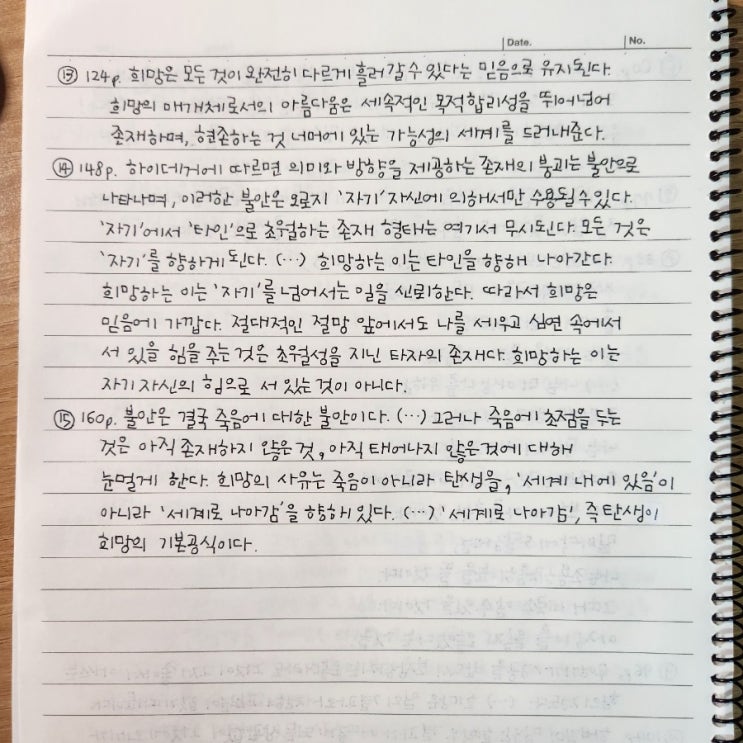 Date. No.
⑬ 124p. 희망은 모든 것이 완전히 다르게 흘러갈 수 있다는 믿음으로 유지된다.
희망의 매개체로서의 아름다움은 세속적인 목적합리성을 뛰어넘어
존재하며, 현존하는 것 너머에 있는 가능성의 세계를 드러내준다.
⑭ 148p. 하이데거에 따르면 의미와 방향을 제공하는 존재의 붕괴는 불안으로
나타나며, 이러한 불안은 오로지 '자기' 자신에 의해서만 수용될 수 있다.
'자기'에서 '타인'으로 초월하는 존재 형태는 여기서 무시된다. 모든 것은
'자기'를 향하게 된다. (…) 희망하는 이는 타인을 향해 나아간다.
희망하는 이는 '자기'를 넘어서는 일을 신뢰한다. 따라서 희망은
믿음에 가깝다. 절대적인 절망 앞에서도 나를 세우고 심연 속에서
서 있을 힘을 주는 것은 초월성을 지닌 타자의 존재다. 희망하는 이는
자기 자신의 힘으로 서 있는 것이 아니다.
⑮ 160p. 불안은 결국 죽음에 대한 불안이다. (…) 그러나 죽음에 초점을 두는
것은 아직 존재하지 않은 것, 아직 태어나지 않은 것에 대해
눈멀게 한다. 희망의 사유는 죽음이 아니라 탄생을, '세계 내에 있음'이
아니라 '세계로 나아감'을 향해 있다. (…) '세계로 나아감', 즉 탄생이
희망의 기본공식이다.